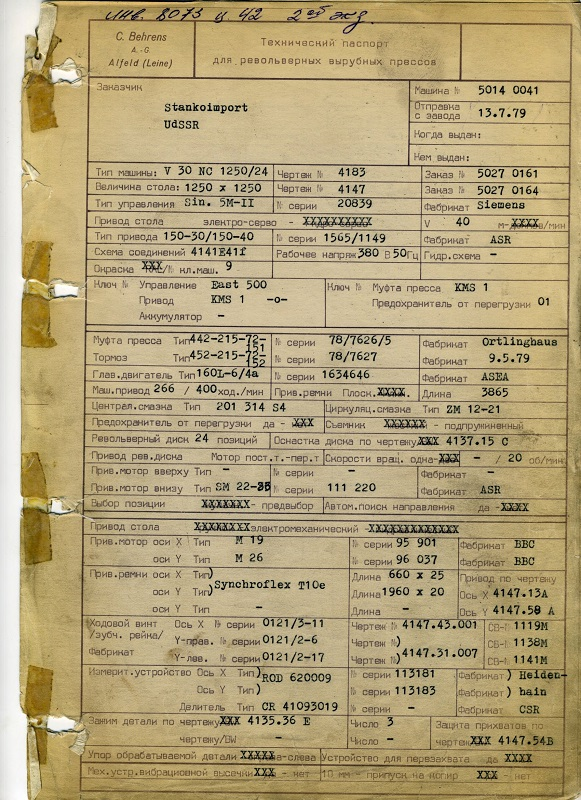 инв. 8073 ц 42 2ой экз.
C. Behrens
A.-G
Alfeld (Leine)
Технический паспорт
для револьверных вырубных прессов
Заказчик
Stankoimport
UdSSR
Машина № 5014 0041
Отправка с завода 13.7.79
Когда выдан:
Кем выдан:
Тип машины: V 30 NC 1250/24 Чертеж № 4183 Заказ № 5027 0161
Величина стола: 1250 x 1250 Чертеж № 4147 Заказ № 5027 0164
Тип управления Sin. 5M-II № серии 20839 Фабрикат Siemens
Привод стола электро-серво - V 40 м-/мин
Тип привода 150-30/150-40 № серии 1565/1149 Фабрикат ASR
Схема соединений 4141E41f Рабочее напряж 380 В 50 Гц Гидр.схема -
Окраска XXX/№ кл.маш. 9
Ключ № Управление East 500 Ключ № Муфта пресса KMS 1
Привод KMS 1 -o- Предохранитель от перегрузки 01
Аккумулятор -
Муфта пресса Тип 442-215-72-151 № серии 78/7626/5 Фабрикат Ortlinghaus
Тормоз Тип 452-215-72-152 № серии 78/7627 Фабрикат 9.5.79
Глав.двигатель Тип 160L-6/4a № серии 1634646 Фабрикат ASEA
Маш.привод 266 / 400 ход./мин Прив.ремни Плоск. XXXX. Длина 3865
Централ.смазка Тип 201 314 S4 Циркуляц.смазка Тип ZM 12-21
Предохранитель от перегрузки да - XXX Съемник XXXXXX - подпружиненный
Револьверный диск 24 позиций Оснастка диска по чертежу XXX 4137.15 C
Привод рев.диска Мотор пост.т.-пер.т Скорости вращ. одна-XXX - / 20 об/мин
Прив.мотор вверху Тип - № серии - Фабрикат -
Прив.мотор внизу Тип SM 22- № серии 111 220 Фабрикат ASR
Выбор позиции XXXXXXX - предвыбор Автом.поиск направления да -XXXX
Привод стола XXXXXXXX электромеханический - XXXXXXXXXXXXX
Прив.мотор оси X Тип M 19 № серии 95 901 Фабрикат BBC
оси Y Тип M 26 № серии 96 037 Фабрикат BBC
Прив.ремни оси X Тип) Synchroflex T10e Длина 660 x 25 Привод по чертежу
оси Y Тип) Длина 1960 x 20 Ось X 4147.13A
оси Y Тип - Длина - Ось Y 4147.58 A
Ходовой винт /зубч. рейка/ Ось X № серии 0121/3-11 Чертеж № 4147.43.001 СВ-№ 1119M
Y-прав. № серии 0121/2-6 Чертеж №) СВ-№ 1138M
Фабрикат Y-лев. № серии 0121/2-17 Чертеж №) 4147.31.007 СВ-№ 1141M
Измерит.устройство Ось X Тип) ROD 620009 № серии 113181 Фабрикат ) Heiden-
Ось Y Тип) № серии 113183 Фабрикат ) hain
Делитель Тип CR 41093019 № серии - Фабрикат CSR
Зажим детали по чертежу XXX 4135.36 E Число 3 Защита прихватов по
чертежу/BW - Число - чертеж XXX 4147.54B
Упор обрабатываемой детали XXXXX-слева Устройство для перезахвата да XXXX
Мех.устр.вибрационной высечки XXX - нет 10 мм - припуск на копир XXX - нет